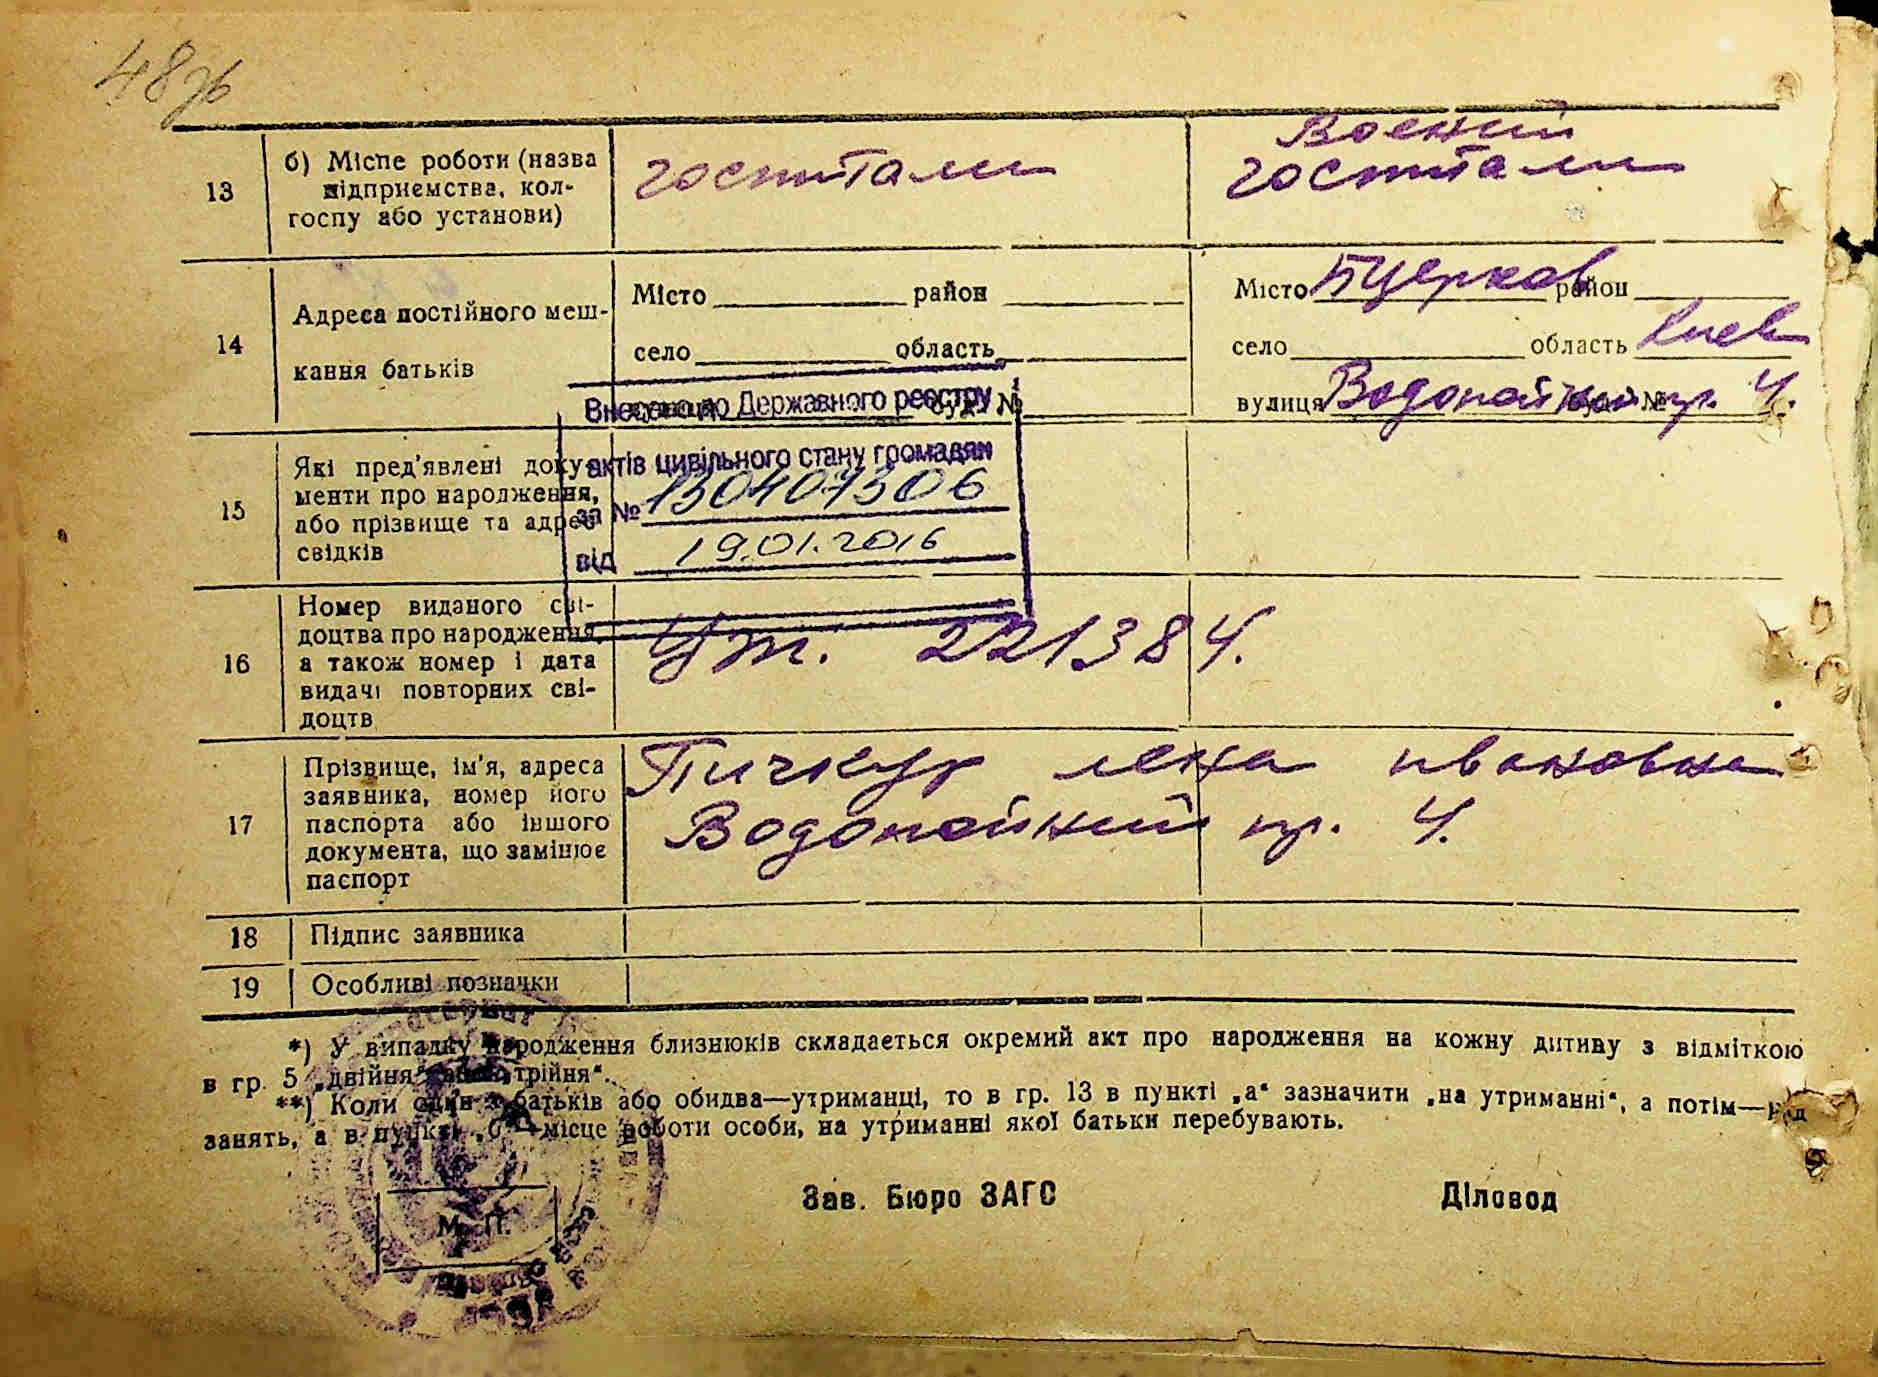 48
13
б) Місце роботи (назва
підприємства, кол-
госпу або установи)
госпиталь
Воений
госпиталь
14
Адреса постійного меш-
кання батьків
Місто район
село область
буд. №
Місто Бцерков район
село область Киев
вулиця Водопойний пр. 4.
Внесено до Державного реєстру
актів цивільного стану громадян
за № 130407306
від 19.01.2016
15
Які пред'явлені доку-
менти про народження,
або прізвище та адрес
свідків
16
Номер виданого сві-
доцтва про народження,
а також номер і дата
видачі повторних сві-
доцтв
221384.
17
Прізвище, ім'я, адреса
заявника, номер його
паспорта або іншого
документа, що замінює
паспорт
Пичкур лена ивановна
Водопойний пр. 4.
18
Підпис заявника
19
Особливі позначки
*) У випадку народження близнюків складається окремий акт про народження на кожну дитину з відміткою
в гр. 5 „двійня“ або „трійня“.
**) Коли один з батьків або обидва—утриманці, то в гр. 13 в пункті „а“ зазначити „на утриманні“, а потім—рід
занять, а в пункті „б“—місце роботи особи, на утриманні якої батьки перебувають.
Зав. Бюро ЗАГС
Діловод
М. П.